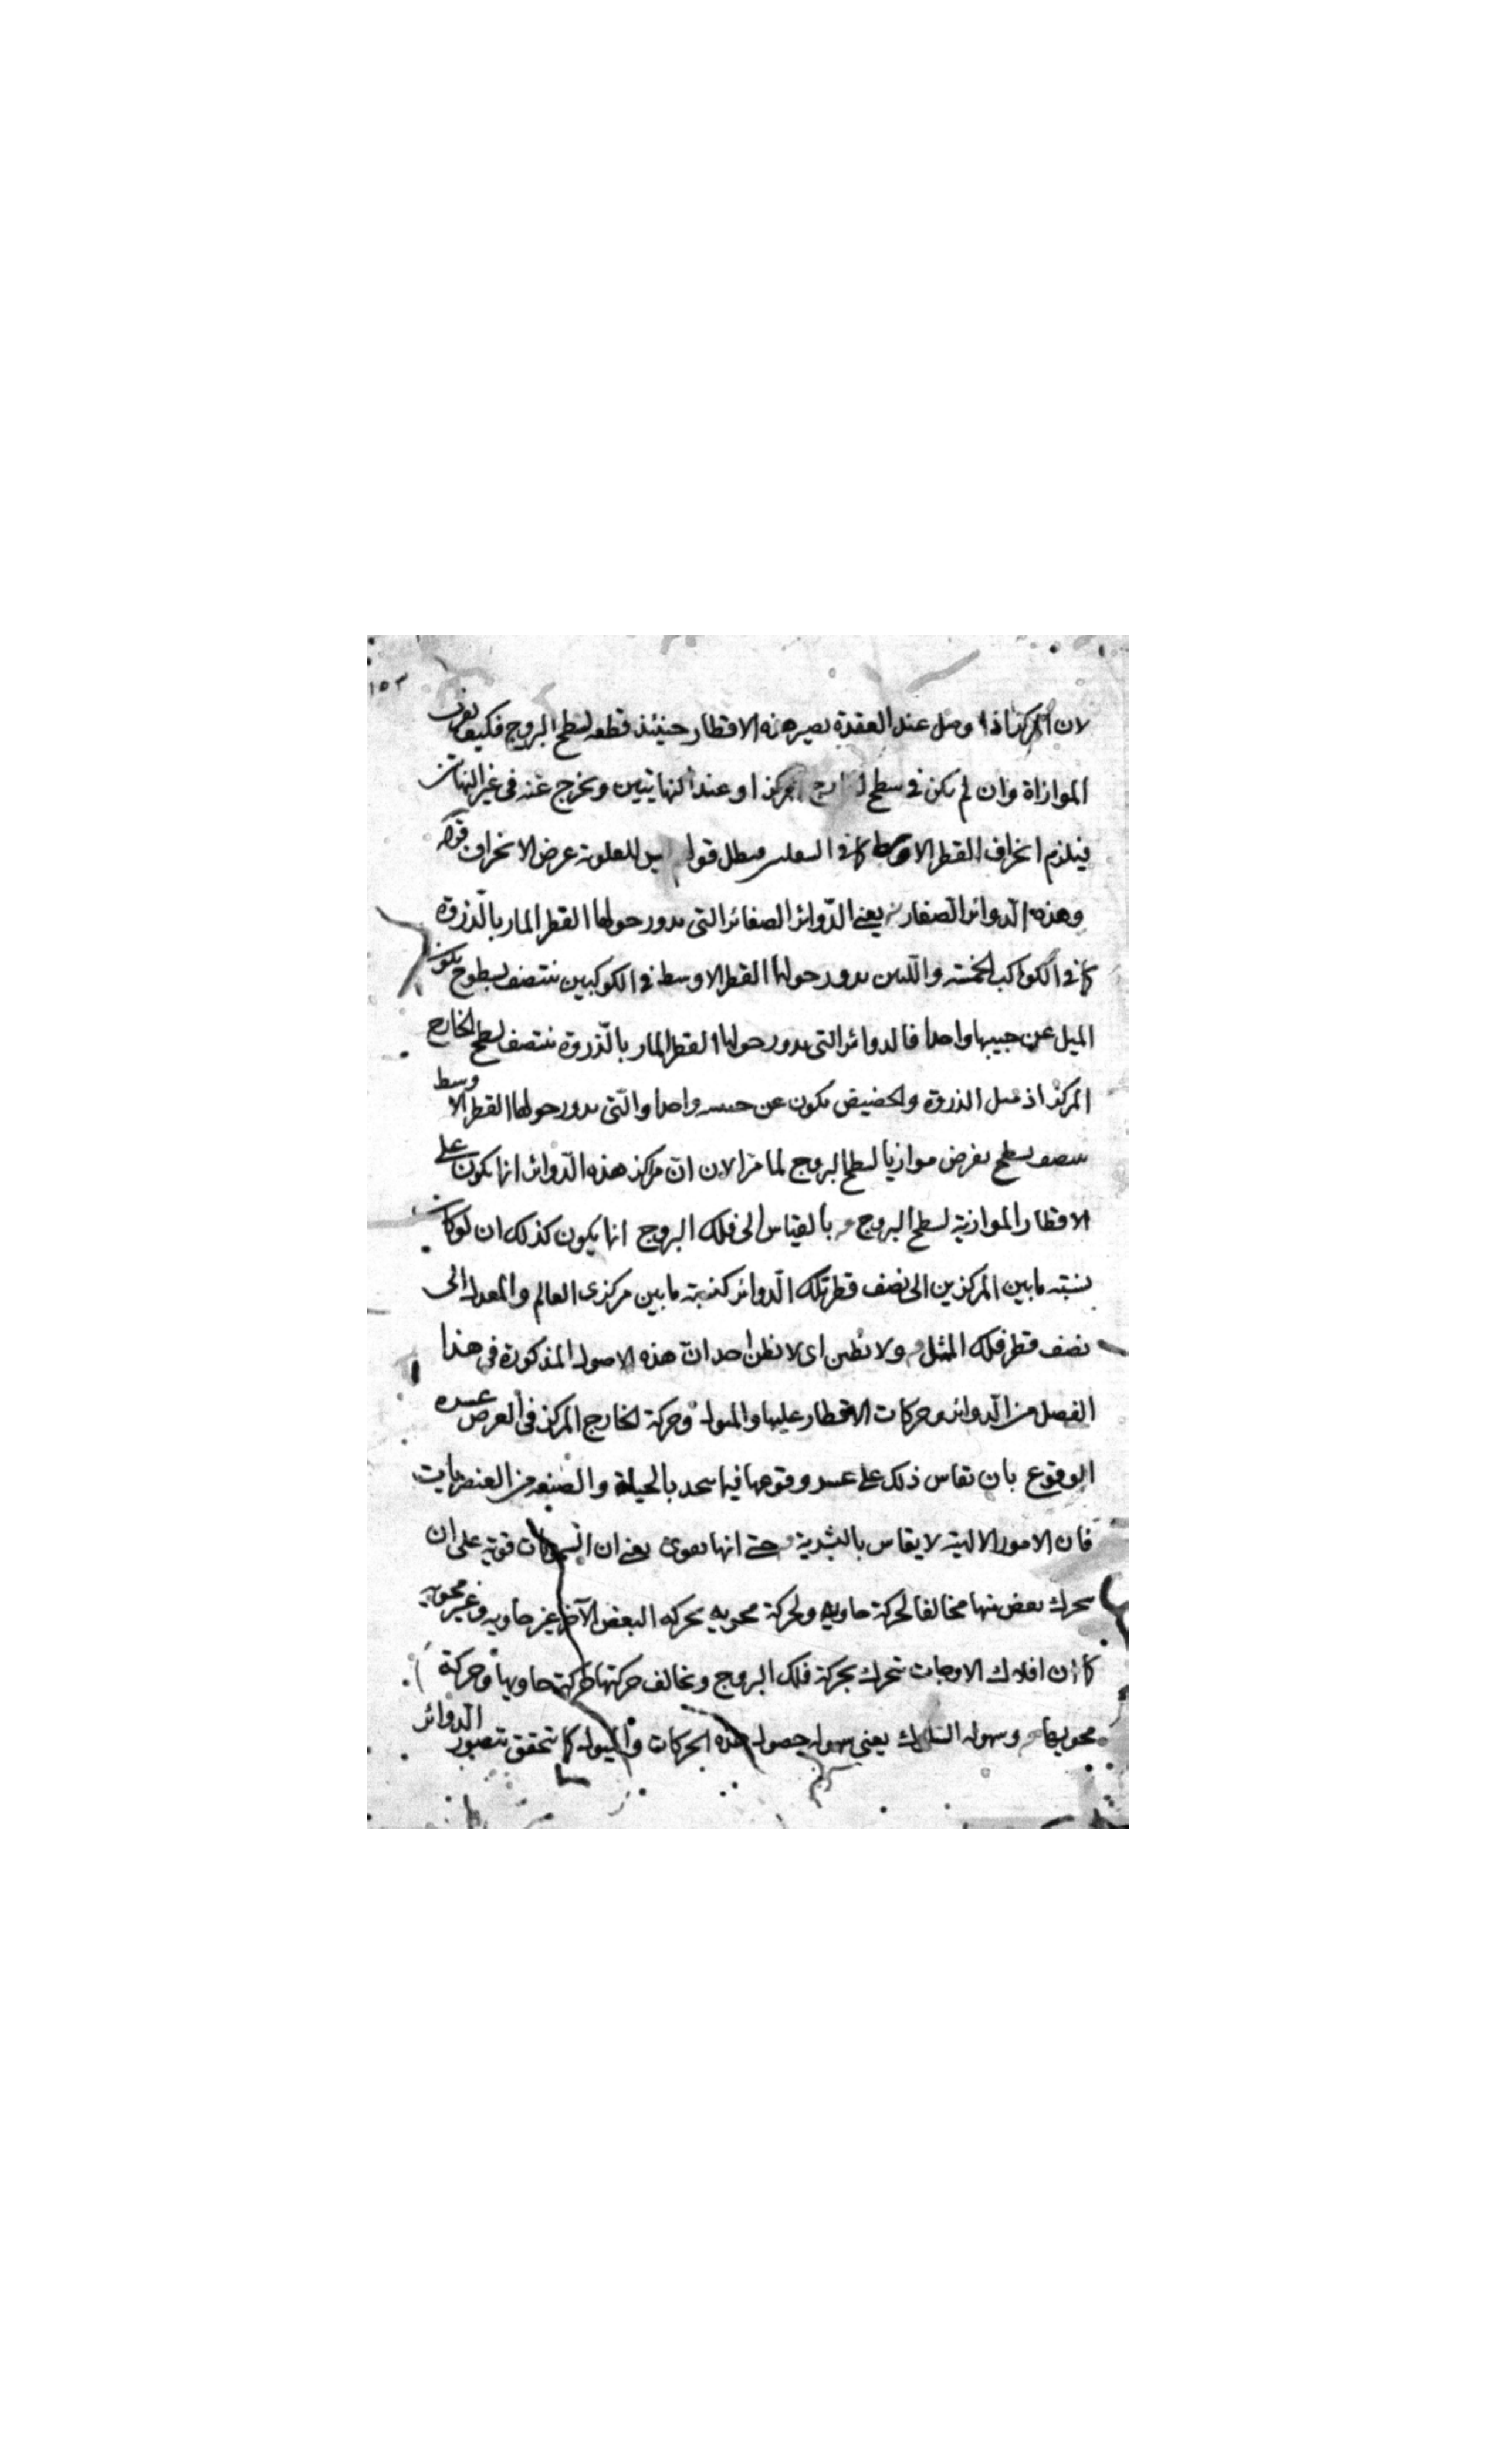 ١٥٣
لان المركز اذا وصل عند العقدة يصير هذه الاقطار حينئذ قطعه لسطح البروج فكيف يعرف
الموازاة وان لم يكن في سطح الخارج المركز او عند النهايتين ويخرج عنه في غير النهايتين
فيلزم انحراف القطر الاوسط كما في السفليين فبطل قول ليس للعلوية عرض الانحراف قوله
وهذه الدوائر الصغار يعني الدوائر الصغائر التي يدور حولها القطر المار بالذروة
كما في الكواكب الخمسة والتي يدور حولها القطر الاوسط في الكوكبين تنتصف بسطوح يكون
الميل عن جنبيها واحدا فالدوائر التي يدور حولها القطر المار بالذروة ينتصف بسطح الخارج
المركز اذ ميل الذروة والحضيض يكون عن جنبيه واحدا والتي يدور حولها القطر الاوسط
ينتصف بسطح يفرض موازيا لسطح البروج لما مر الان ان مراكز هذه الدوائر انما يكون على
الاقطار الموازية لسطح البروج وبالقياس الى فلك البروج انما يكون كذلك ان لو كانت
نسبة ما بين المركزين الى نصف قطر تلك الدوائر كنسبة ما بين مركزى العالم والمعدل الى
نصف قطر فلك الممثل ولا نظنن اى لا نظن احد ان هذه الاصول المذكورة في هذا
الفصل من الدوائر وحركات الاقطار عليها والميول وحركة الخارج المركز في العرض عسرة
الوقوع بان تقاس ذلك على عسر وقوعها فيما يتحد بالحيلة والصنعة من العنصريات
فان الامور الالهية لا يقاس بالبشرية حتى انها تقوى يعني ان السمويات قوية على ان
يتحرك بعض منها مخالفا لحركة حاوية ولحركة محوية بحركة البعض الآخر غير حاوية وغير محوية
كما ان افلاك الاوجات تتحرك بحركة فلك البروج وتخالف حركتها حركة حاويها وحركة
محويها وسهولة التسلك يعني سهولة حصول هذه الحركات والميول كما تتحقق بتصور الدوائر